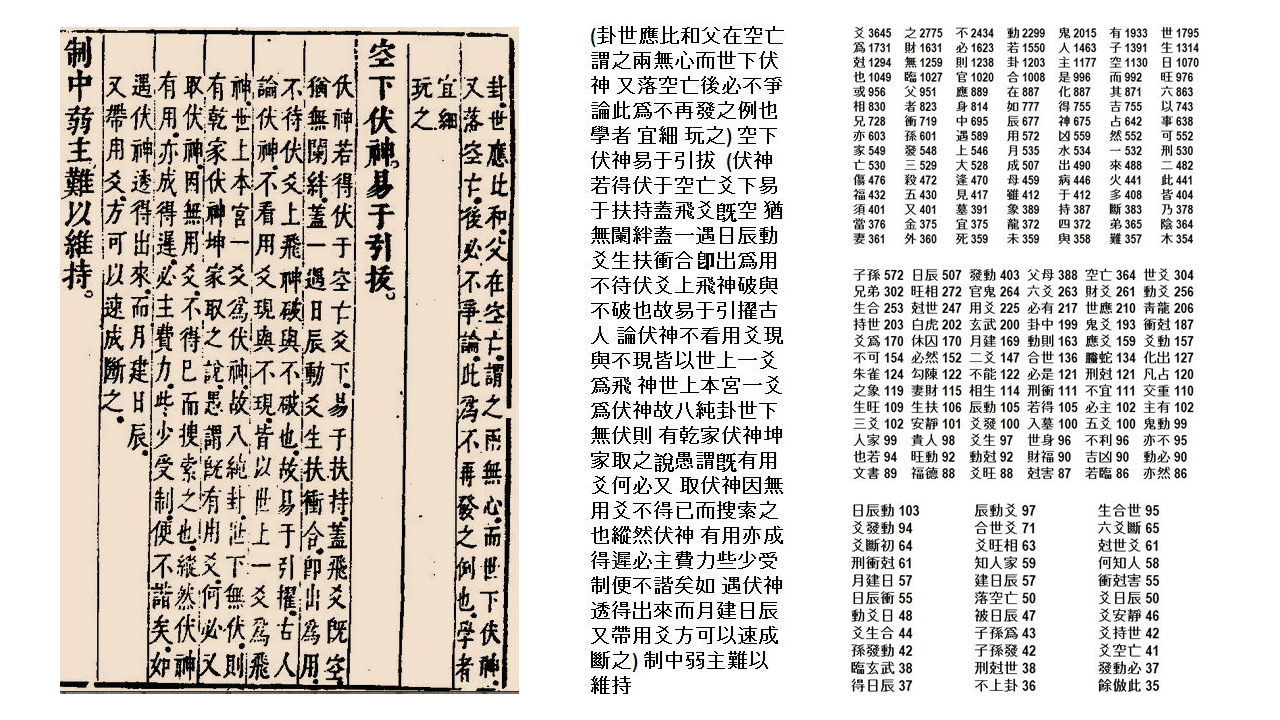 卦世應比和父在空亡謂之兩無心而世下伏神
又落空亡後必不爭論此爲不再發之例也學者
宜細
玩之
空下伏神易于引拔
伏神若得伏于空亡爻下易于扶持蓋飛爻旣空
猶無闌絆蓋一遇日辰動爻生扶衝合卽出爲用
不待伏爻上飛神破與不破也故易于引擢古人
論伏神不看用爻現與不現皆以世上一爻爲飛
神世上本宮一爻爲伏神故八純卦世下無伏則
有乾家伏神坤家取之說愚謂旣有用爻何必又
取伏神因無用爻不得已而搜索之也縱然伏神
有用亦成得遲必主費力些少受制便不諧矣如
遇伏神透得出來而月建日辰
又帶用爻方可以速成斷之
制中弱主難以維持
(卦世應比和父在空亡
謂之兩無心而世下伏
神 又落空亡後必不爭
論此爲不再發之例也
學者 宜細 玩之) 空下
伏神易于引拔 (伏神
若得伏于空亡爻下易
于扶持蓋飛爻旣空 猶
無闌絆蓋一遇日辰動
爻生扶衝合卽出爲用
不待伏爻上飛神破與
不破也故易于引擢古
人 論伏神不看用爻現
與不現皆以世上一爻
爲飛 神世上本宮一爻
爲伏神故八純卦世下
無伏則 有乾家伏神坤
家取之說愚謂旣有用
爻何必又 取伏神因無
用爻不得已而搜索之
也縱然伏神 有用亦成
得遲必主費力些少受
制便不諧矣如 遇伏神
透得出來而月建日辰
又帶用爻方可以速成
斷之) 制中弱主難以
維持
爻 3645 之 2775 不 2434 動 2299 鬼 2015 有 1933 世 1795
爲 1731 財 1631 必 1623 若 1550 人 1463 子 1391 生 1314
尅 1294 無 1259 則 1238 卦 1203 主 1177 空 1130 日 1070
也 1049 臨 1027 官 1020 合 1008 是 996 而 992 旺 976
或 956 父 951 應 889 在 887 化 887 其 871 六 863
相 830 者 823 身 814 如 777 得 755 吉 755 以 743
兄 728 衝 719 中 695 辰 677 神 675 占 642 事 638
亦 603 孫 601 遇 589 用 572 凶 559 然 552 可 552
家 549 發 548 上 546 月 535 水 534 一 532 刑 530
亡 530 三 529 大 528 成 507 出 490 來 488 二 482
傷 476 殺 472 逢 470 母 459 病 446 火 441 此 441
福 432 五 430 見 417 雖 412 于 412 多 408 皆 404
須 401 又 401 墓 391 象 389 持 387 斷 383 乃 378
當 376 金 375 宜 375 龍 372 四 372 弟 365 陰 364
妻 361 外 360 死 359 未 359 與 358 難 357 木 354
子孫 572 日辰 507 發動 403 父母 388 空亡 364 世爻 304
兄弟 302 旺相 272 官鬼 264 六爻 263 財爻 261 動爻 256
生合 253 尅世 247 用爻 225 必有 217 世應 210 靑龍 206
持世 203 白虎 202 玄武 200 卦中 199 鬼爻 193 衝尅 187
爻爲 170 休囚 170 月建 169 動則 163 應爻 159 爻動 157
不可 154 必然 152 二爻 147 合世 136 螣蛇 134 化出 127
朱雀 124 勾陳 122 不能 122 必是 121 刑尅 121 凡占 120
之象 119 妻財 115 相生 114 刑衝 111 不宜 111 交重 110
生旺 109 生扶 106 辰動 105 若得 105 必主 102 主有 102
三爻 102 安靜 101 爻發 100 入墓 100 五爻 100 鬼動 99
人家 99 貴人 98 爻生 97 世身 96 不利 96 亦不 95
也若 94 旺動 92 動尅 92 財福 90 吉凶 90 動必 90
文書 89 福德 88 爻旺 88 尅害 87 若臨 86 亦然 86
日辰動 103 辰動爻 97 生合世 95
爻發動 94 合世爻 71 六爻斷 65
爻斷初 64 爻旺相 63 尅世爻 61
刑衝尅 61 知人家 59 何知人 58
月建日 57 建日辰 57 衝尅害 57
日辰衝 55 落空亡 50 爻日辰 50
動爻日 48 被日辰 47 爻安靜 46
爻生合 44 子孫爲 43 爻持世 42
孫發動 42 子孫發 42 爻空亡 41
臨玄武 38 刑尅世 38 發動必 37
得日辰 37 不上卦 36 餘倣此 35